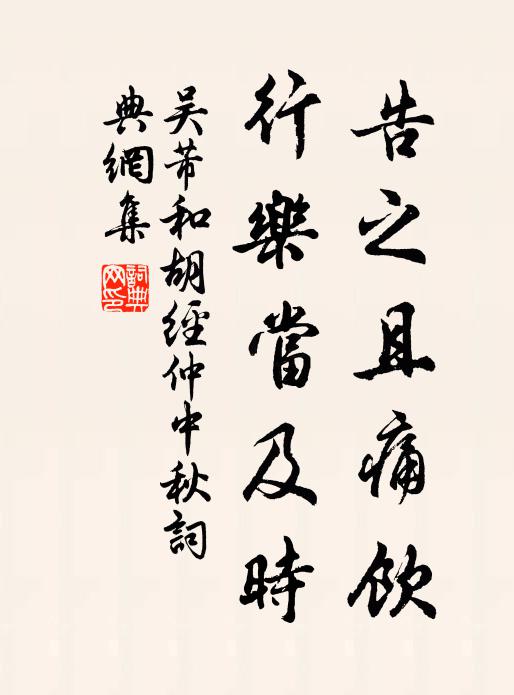 告之且痛飲
行樂當及時
吳芾和胡經仲中秋詞
典網集
詞典網印